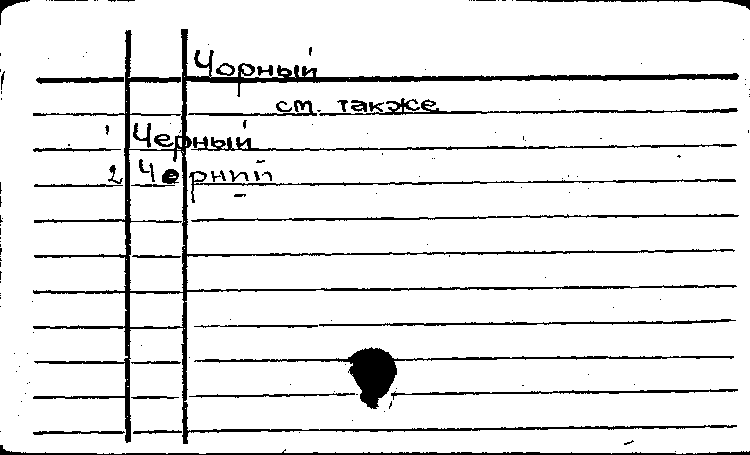 Чорный
см. также
1 Черный
2 Черний